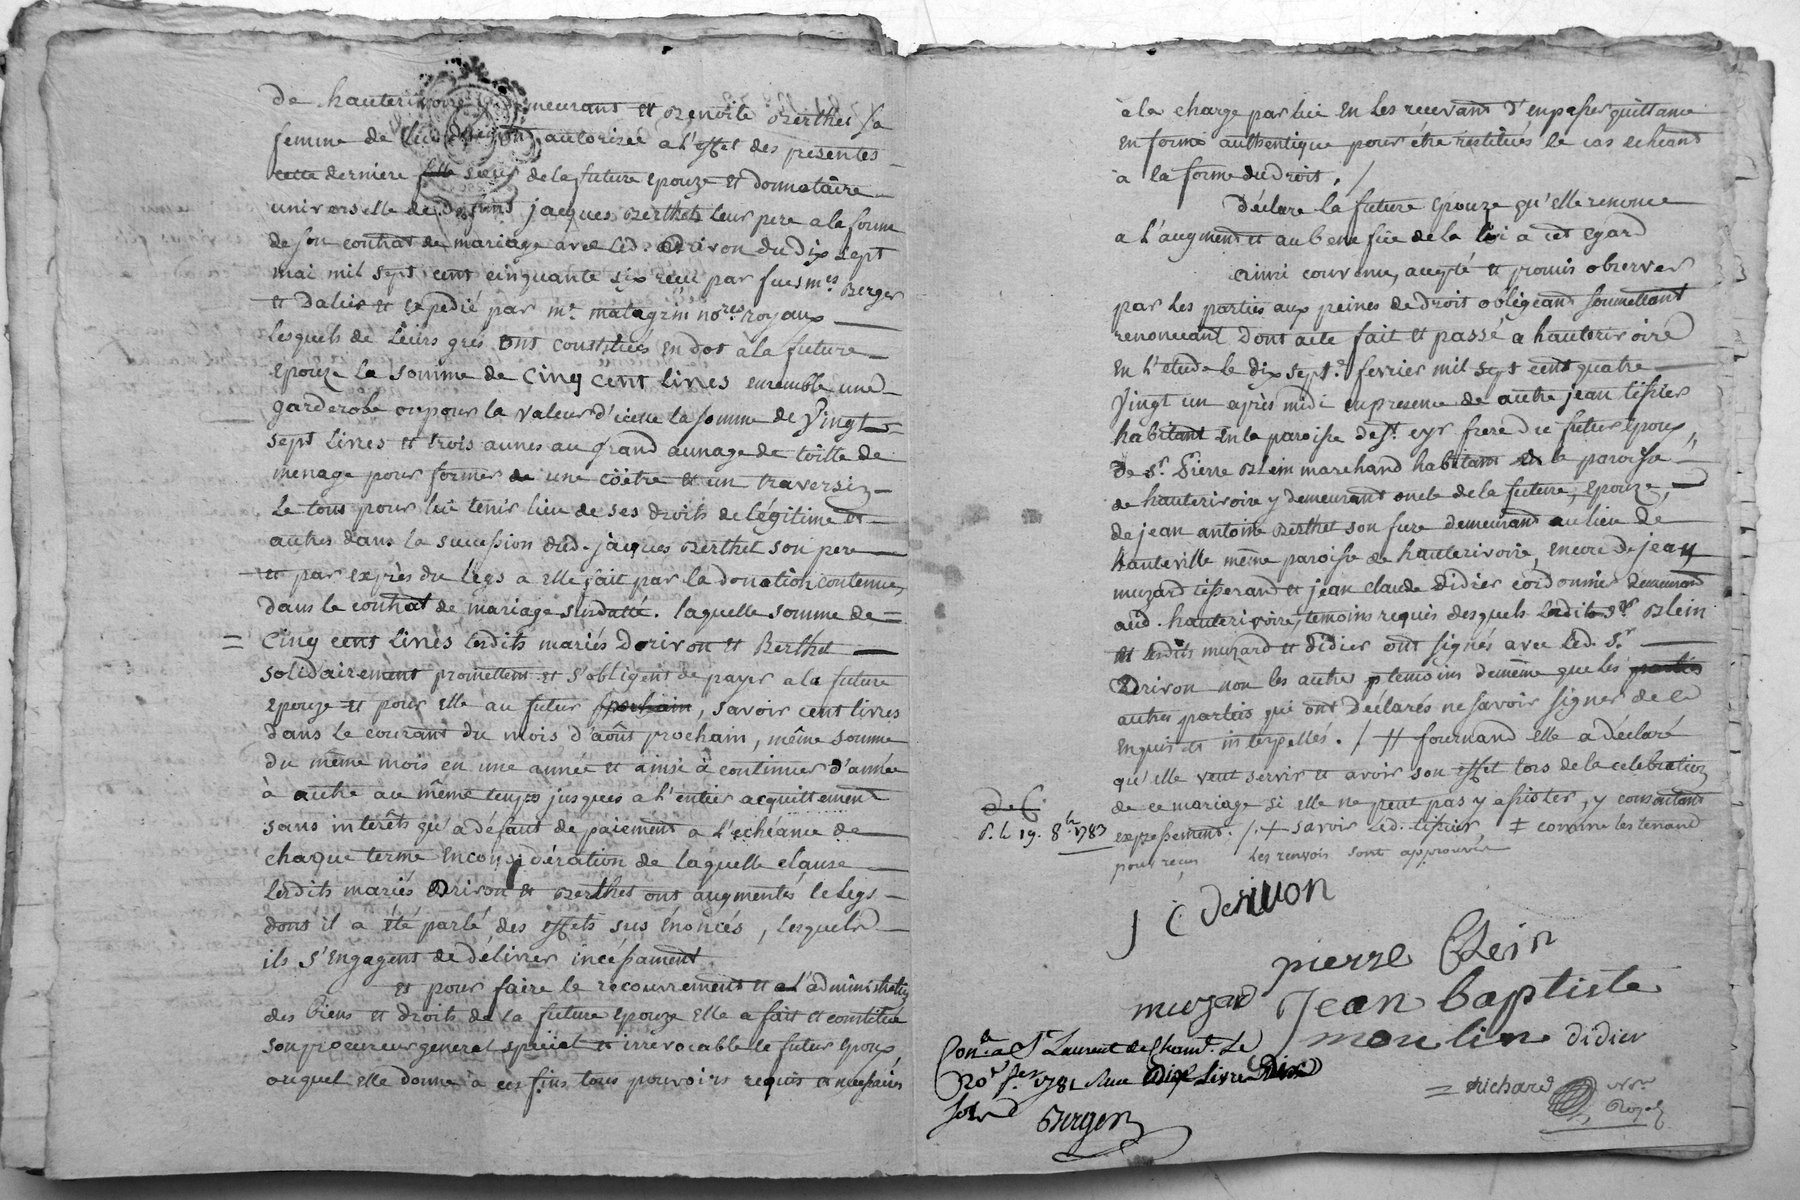 de hauterivoire y demeurant et Benoite Berthet sa
femme de lui autorisée a l'effet des presentes
cette derniere sœur de la future epouze et donnataire
universelle de defunt jacques Berthet leur pere a la forme
de son contrat de mariage avec led. Drivon du dix sept
mai mil sept cent cinquante six reçu par feu mes Berger
et Dalier et expedié par mr. matagrin nores. royaux
lesquels de leurs grés ont constitués en dot à la future
epouze la somme de cinq cent livres ensemble une
garderobe ou pour la valeur d'icelle la somme de vingt
sept livres et trois aunes au grand aunage de toille de
menage pour former de une coëtre et un traversin
le tout pour lui tenir lieu de ses droits de légitime et
autres dans la succession dud. jacques Berthet son pere
et par exprès du legs a elle fait par la donation contenue
dans le contrat de mariage susdatté. laquelle somme de
cinq cent livres lesdits mariés Dorivon et Berthet
solidairement promettent et s'obligent de payer a la future
epouze et pour elle au futur prochain, savoir cent livres
dans le courant du mois d'août prochain, même somme
du même mois en une année et ainsi à continuer d'année
à autre au même temps jusques a l'entier acquittement
sans intérêts qu'a défaut de paiement a l'echéance de
chaque terme en considération de laquelle clause
lesdits mariés Drivon et Berthet ont augmentés le legs
dont il a été parlé, des effets sus énoncés, lesquels
ils s'engagent de délivrer incessament.
et pour faire le recouvrement et a l'administration
des biens et droits de la future epouze elle a fait et constitue
son procureur general special et irrévocable le futur epoux,
auquel elle donne à ces fins tous pouvoirs requis et necessaires
à la charge par lui en les recevant d'en passer quittance
en forme authentique pour être restitués le cas echeant
a la forme du droit. /
Déclare la future epouze qu'elle renonce
a l'augment et au benefice de la loi a cet egard
ainsi convenu, accepté et promis observer
par les parties aux peines de droit obligeant soumettant
renonceant dont acte fait et passé a hauterivoire
en l'etude le dix sept. fevrier mil sept cent quatre
vingt un après midi en presence de autre jean tissier
habitant en la paroisse de st. cyr frere du futur epoux,
de sr. Pierre Blein marchand habitant de la paroisse
de hauterivoire y demeurant oncle de la future epouze,
de jean antoine Berthet son frere demeurant au lieu de
hauteville même paroisse de hauterivoire, encore de jean
muzard tisserand et jean claude didier cordonnier demeurant
aud. hauterivoire, temoins requis desquels ledit sr. Blein
et lesdits muzard et didier ont signés avec led. sr.
Drivon non les autres temoins de même que les parties
autres parties qui ont déclarés ne savoir signer de ce
enquis et interpellés. / # fournand elle a déclaré
qu'elle veut servir et avoir son effet lors de la celebration
de ce mariage si elle ne peut pas y assister, y consentant
expressement. /. + savoir led. tissier, ‡ comme les tenand
pour reçus Les renvois sont approuvés
d. le 19. 8bre. 1783
j c derivon
pierre Blein
muzard Jean baptiste
moulin didier
= Richard
Conlé. a St. Laurent de Chamt. Le
20 fer. 1781 Reçu Dix Livre Dix
sols
Berger